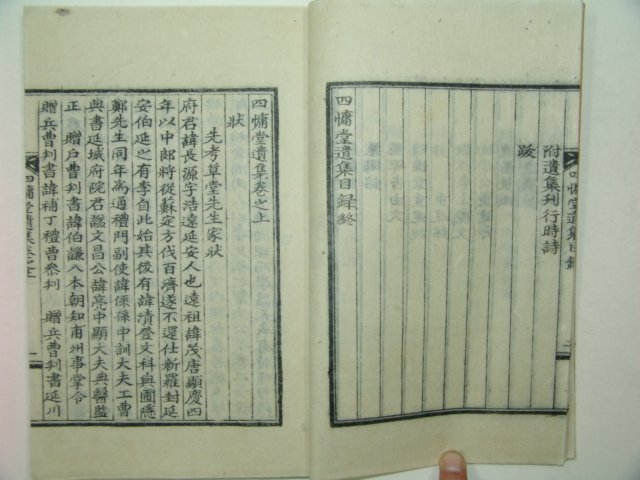 附遺集刊行時詩
跋
四慵堂遺集目録終
四慵堂遺集卷之上
狀
先考草堂先生家狀
府君諱長源字浩遠延安人也遠祖諱茂唐顯慶四
年以中郎將從蘇定方伐百濟遂不還仕新羅封延
安伯延之有李自此始其後有諱漬登文科與圃隱
鄭先生同年爲通禮門副使諱係孫中訓大夫工曹
典書延城府院君諡文昌公諱亮中顯大夫典醫監
正 贈戶曹判書諱伯謙入本朝知甫州事掌令
贈兵曹判書諱補丁禮曹參判 贈兵曹判書延川
四慵堂遺集卷之上
一
四慵堂遺集目録
二